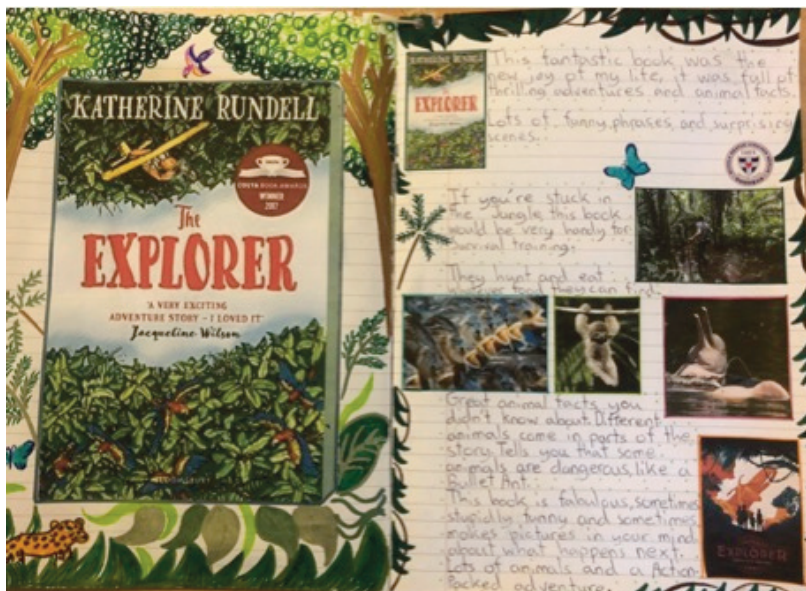 KATHERINE RUNDELL
COSTA BOOK AWARDS
WINNER
2017
The
EXPLORER
'A VERY EXCITING
ADVENTURE STORY - I LOVED IT'
Jacqueline Wilson
BLOOMSBURY
KATHERINE RUNDELL
The
EXPLORER
This fantastic book was the
new joy of my life, it was full of
thrilling adventures and animal facts.
Lots of funny, phrases, and surprising
scenes.
If you're stuck in
the Jungle this book
would be very handy for
survival training.
They hunt and eat
whatever food they can find.
Great animal facts you
didn't know about. Different
animals come in parts of the
story. Tells you that some
animals are dangerous, like a
Bullet Ant.
This book is fabulous, sometimes
stupidly funny and sometimes
makes pictures in your mind
about what happens next.
Lots of animals and a Action-
Packed adventure.
EXPLORER